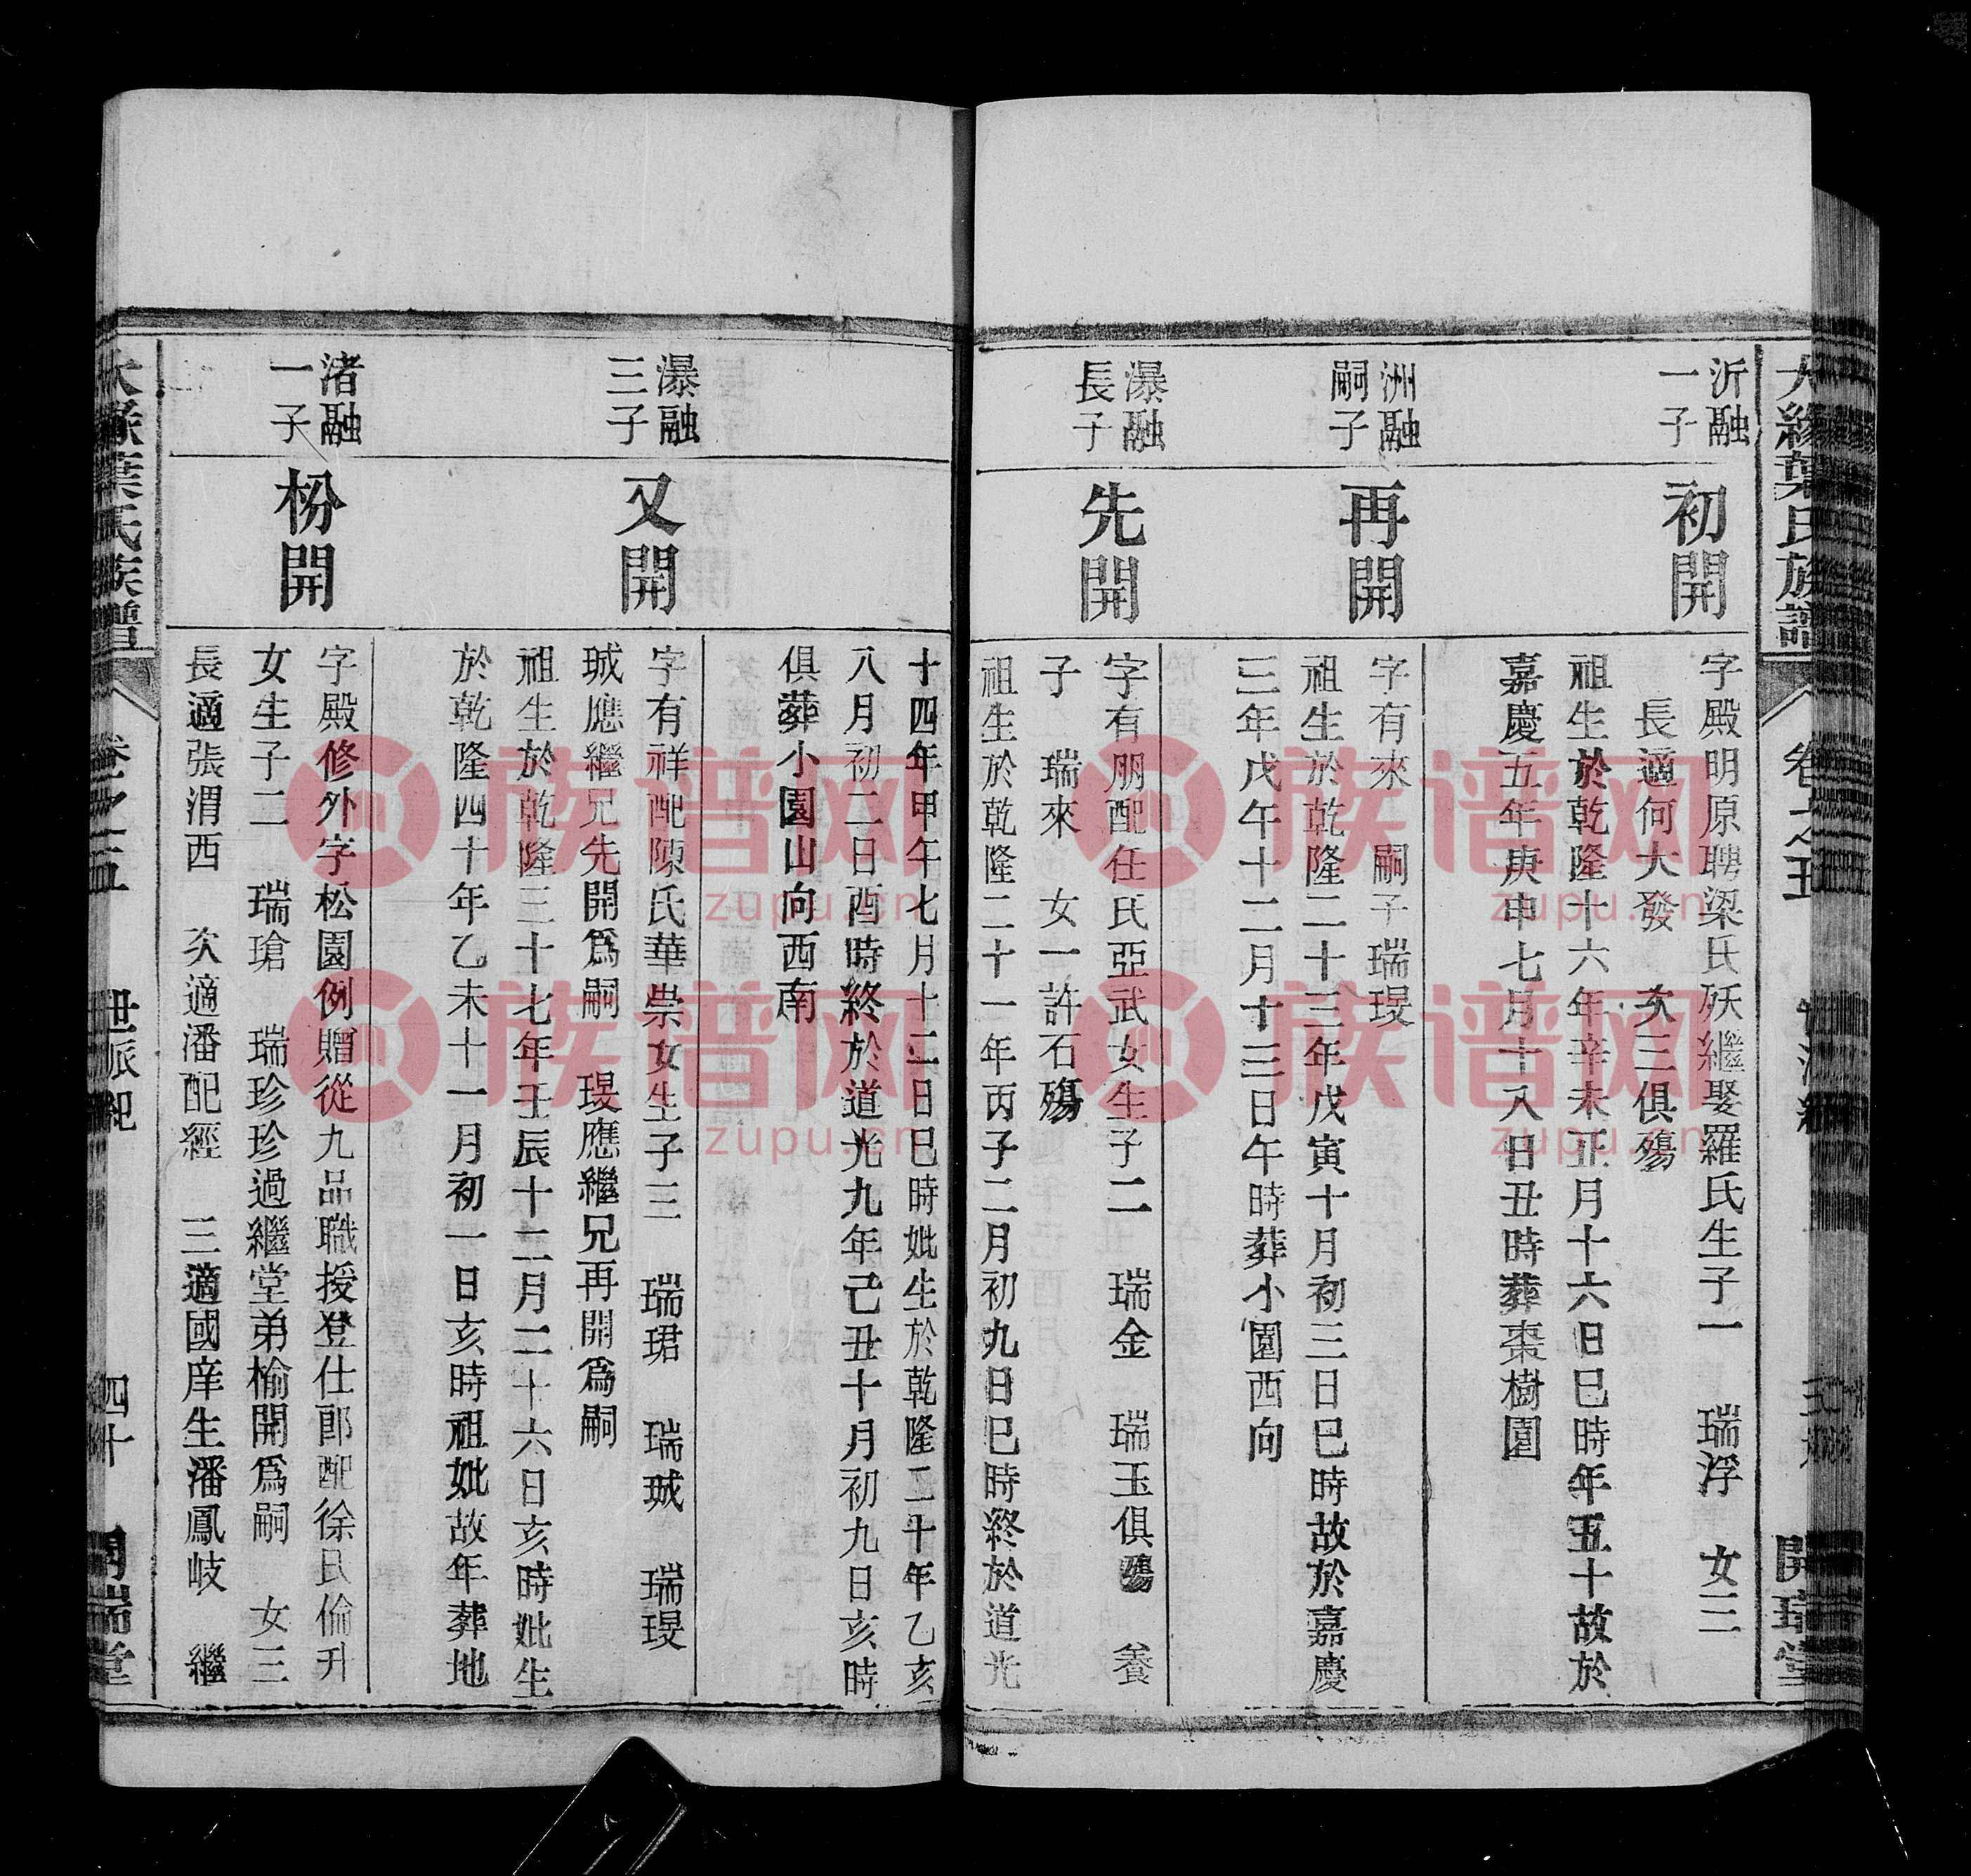 葉氏族譜
卷之五
沂融
一子
初開
字殿明原聘梁氏殀繼娶羅氏生子一 瑞浮 女三
長適何大發 次三俱殤
祖生於乾隆十六年辛未正月十六日巳時年五十故於
嘉慶五年庚申七月十八日丑時葬棗樹園
洲融
嗣子
再開
字有來 嗣子瑞琝
祖生於乾隆二十三年戊寅十月初三日巳時故於嘉慶
三年戊午十二月十三日午時葬小園西向
瀑融
長子
先開
字有朋配任氏亞武女生子二 瑞金 瑞玉俱殤 養
子 瑞來 女一許石殤
祖生於乾隆二十一年丙子二月初九日巳時終於道光
十四年甲午七月十二日巳時妣生於乾隆二十年乙亥
八月初二日酉時終於道光九年己丑十月初九日亥時
俱葬小園山向西南
瀑融
三子
又開
字有祥配陳氏華崇女生子三 瑞珺 瑞珹 瑞琝
珹應繼兄先開為嗣 琝應繼兄再開為嗣
祖生於乾隆三十七年壬辰十二月二十六日亥時妣生
於乾隆四十年乙未十一月初一日亥時祖妣故年葬地
渚融
一子
枌開
字殿修外字松園例贈從九品職授登仕郎配徐氏倫升
女生子二 瑞瑲 瑞珍珍過繼堂弟榆開為嗣 女三
長適張渭西 次適潘配經 三適國庠生潘鳳岐 繼
葉氏族譜
卷之五
世派紀
四十
開瑞堂
族谱网
zupu.cn
族谱网
zupu.cn
族谱网
zupu.cn
族谱网
zupu.cn